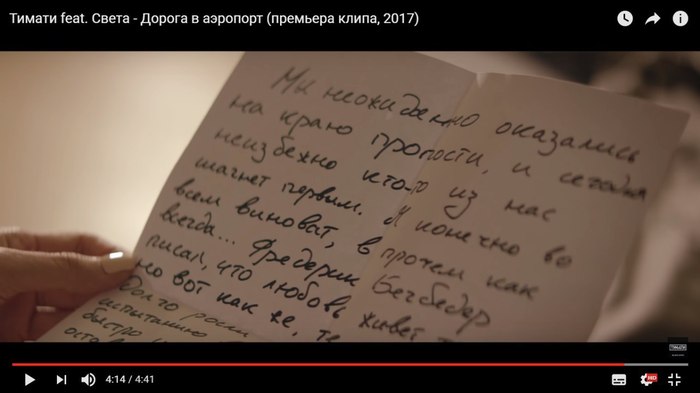 Тимати feat. Света - Дорога в аэропорт (премьера клипа, 2017)
Мы неожиданно оказались
на краю пропасти, и сегодня
неизбежно кто-то из нас
шагнет первым. Я конечно во
всем виноват, в прочем как
всегда... Фредерик Бегбедер
писал, что любовь живет
но вот как же, те
Долго
испытанию
быстро
ТИМАТИ
4:14 / 4:41
HD